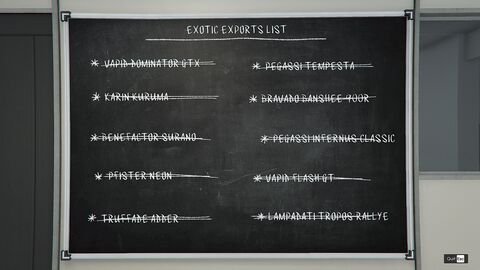 EXOTIC EXPORTS LIST
* VAPID DOMINATOR GTX
* KARIN KURUMA
* BENEFACTOR SURANO
* PFISTER NEON
* TRUFFADE ADDER
* PEGASSI TEMPESTA
* BRAVADO BANSHEE 900R
* PEGASSI INFERNUS CLASSIC
* VAPID FLASH GT
* LAMPADATI TROPOS RALLYE
Quit